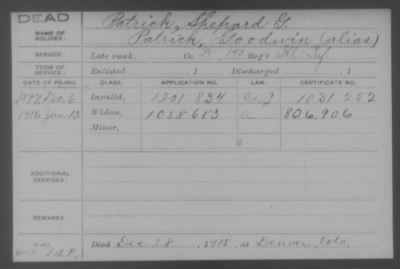 DEAD
NAME OF SOLDIER: Patrick, Shepard G.
Patrick, Goodwin (alias)
SERVICE: Late rank, Co. D, Reg't Inf.
TERM OF SERVICE: Enlisted , 1 Discharged , 1
DATE OF FILING. CLASS. APPLICATION NO. LAW. CERTIFICATE NO.
1897, Dec. 6 Invalid, 1201 834 1031 252
1916 Jan. 13 Widow, 1058 683 806,906
Minor,
ADDITIONAL SERVICES:
REMARKS:
Died Dec 28, 1915, at Denver, Colo.